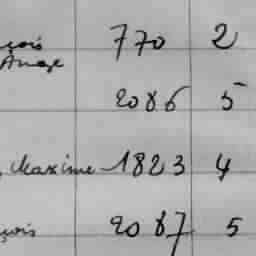 çois 770 2
Ange
2086 5
, Maxime 1823 4
çois 2087 5